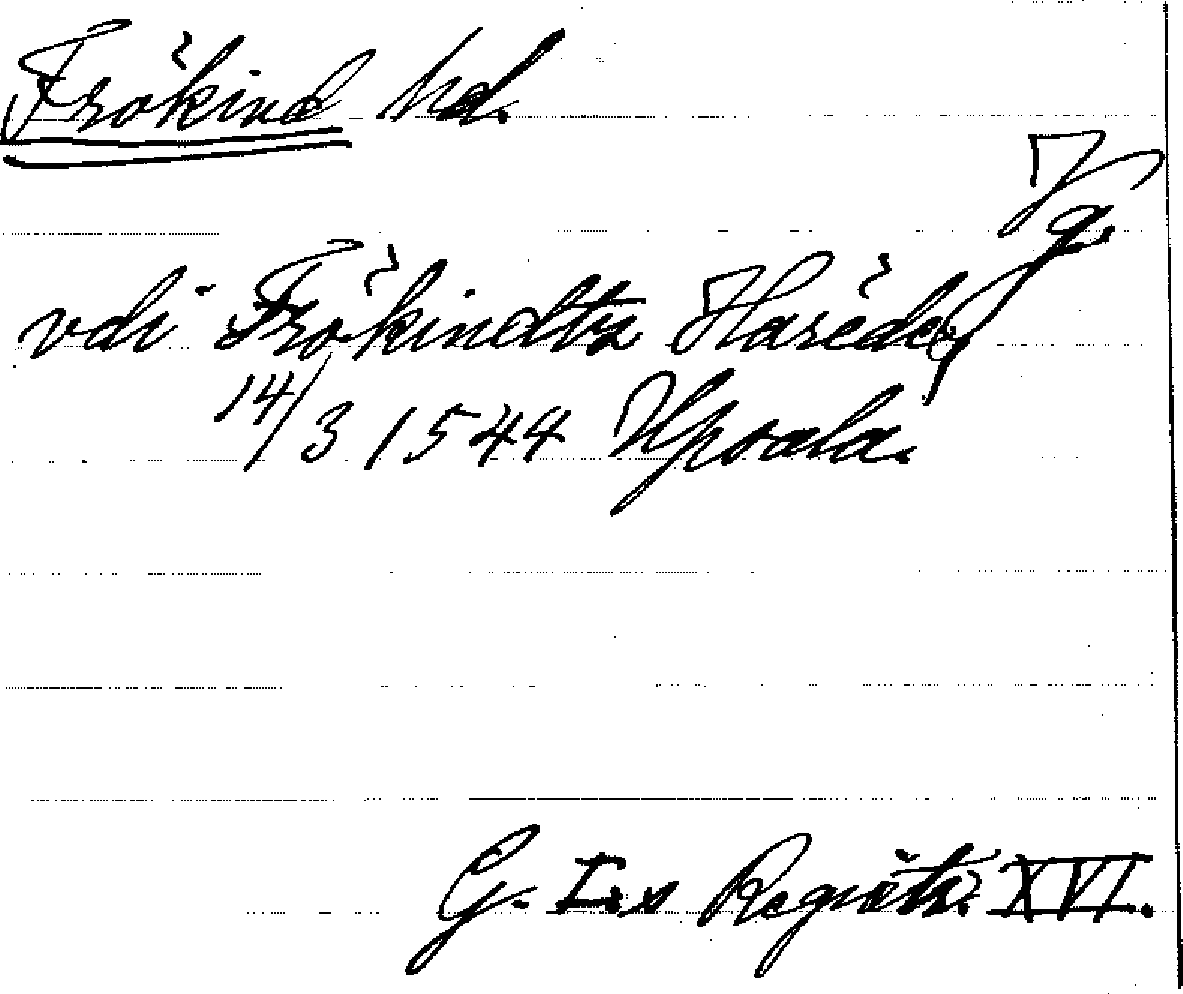 Frökind hd.
Vg.
vdi Frökindtz Häredt
14/3 1544 Upsala.
G. I.s Registr. XVI.